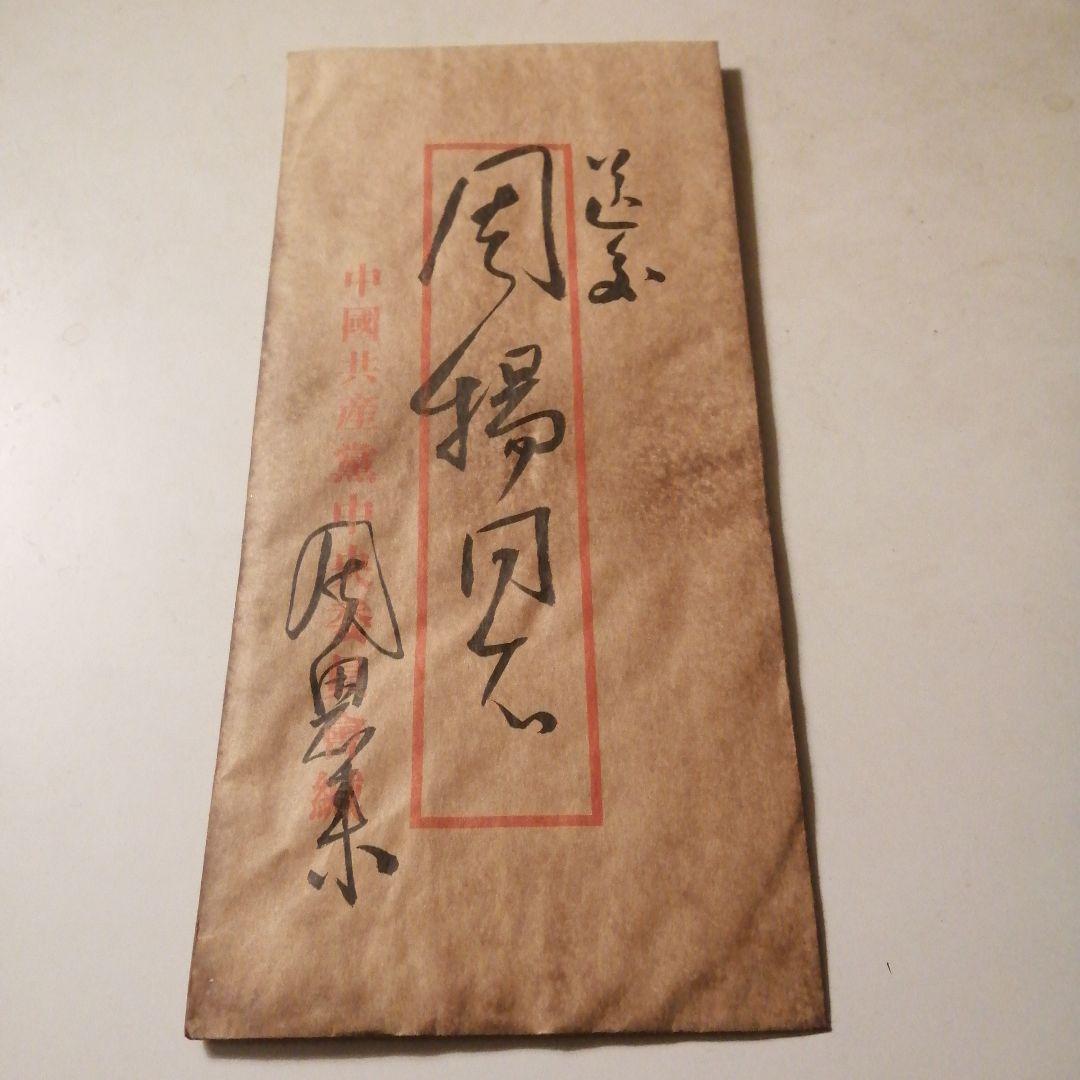 送交
周揚同志
中國共產黨中央委員會緘
周恩来